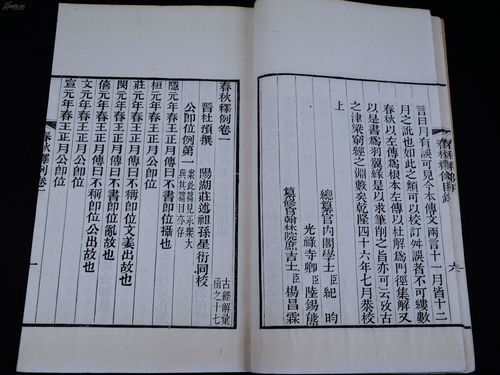 言日月有誤可見今本傳文兩言十一月皆十二
月之訛也如此之類可以校訂舛誤者不可縷數
春秋以左傳為根本左傳以杜解為門徑集解又
以是書為羽翼緣是以求筆削之旨亦可云攷古
之津梁窮經之淵藪矣乾隆四十六年七月恭校
上
總纂官內閣學士臣紀昀
光祿寺卿臣陸錫熊
纂修官翰林院庶吉士臣楊昌霖
六
春秋釋例卷一
晉杜預撰 陽湖莊述祖孫星衍同校
古經解彙函之十七
公即位例第一
隱元年春王正月傳曰不書即位攝也
桓元年春王正月公即位
莊元年春王正月傳曰不稱即位文姜出故也
閔元年春王正月傳曰不書即位亂故也
僖元年春王正月傳曰不稱即位公出故也
文元年春王正月公即位
宣元年春王正月公即位
春秋釋例卷一
一